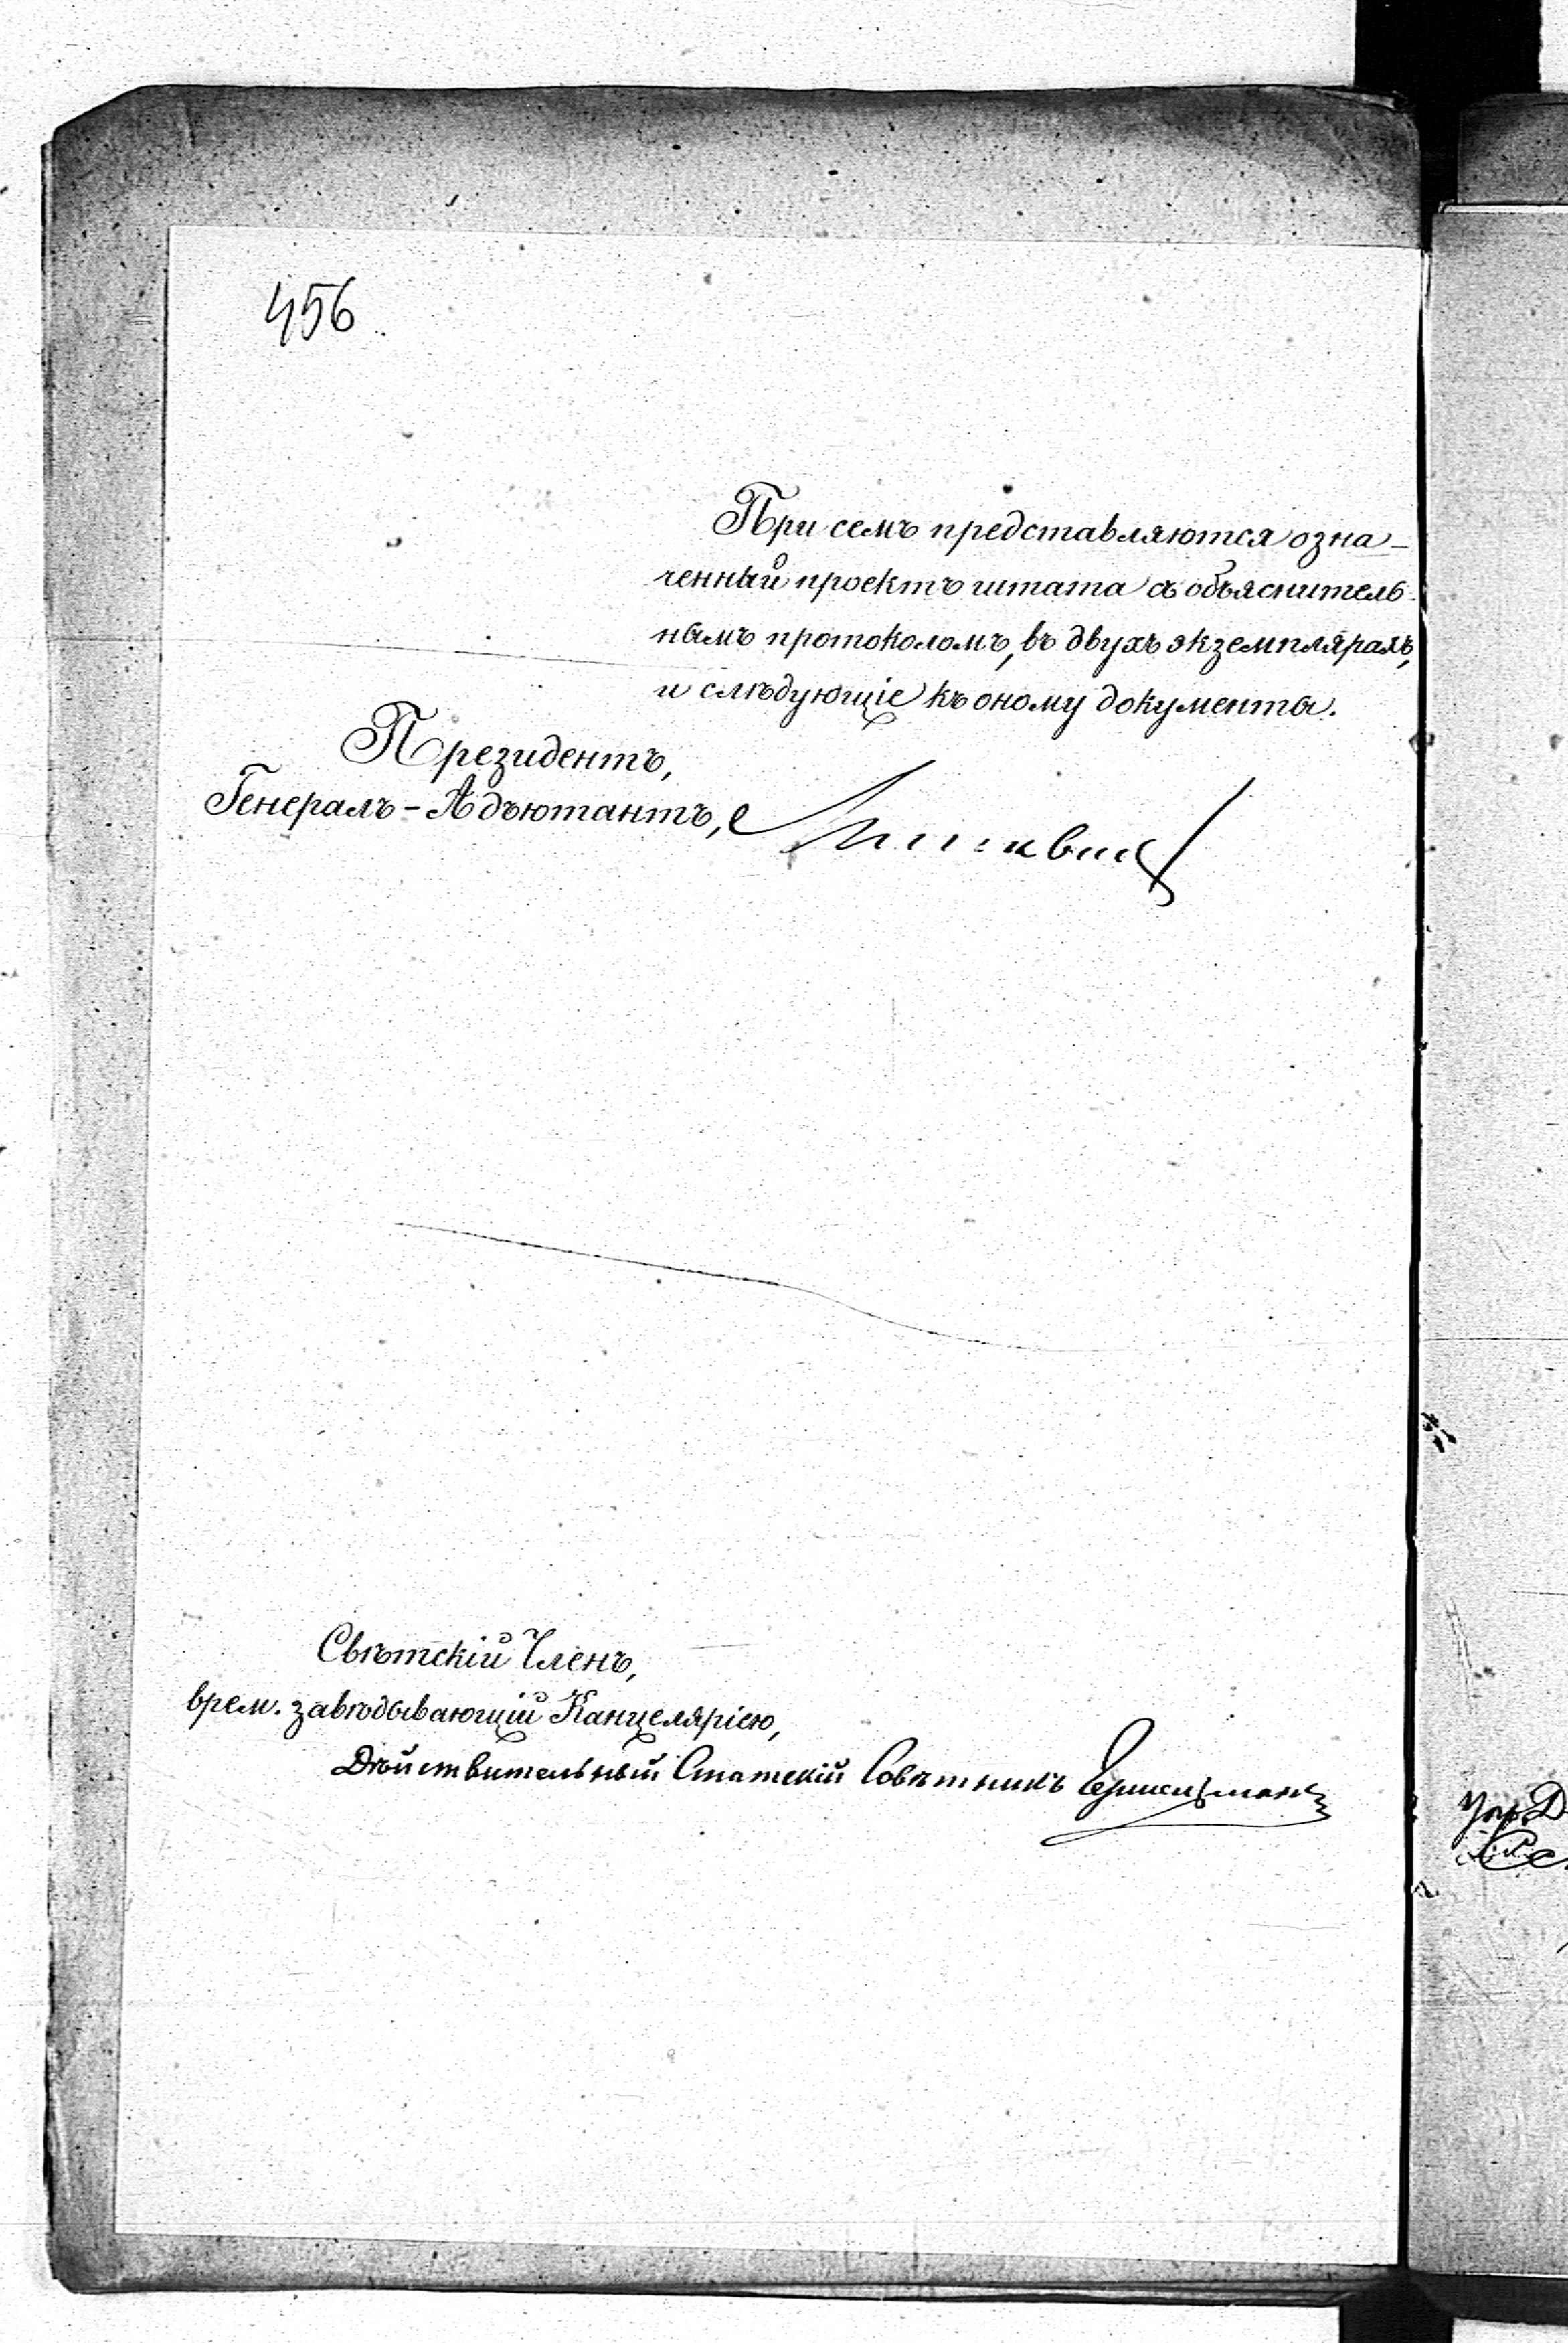 456
При семъ представляются озна-
ченный проектъ штата съ объяснитель-
нымъ протоколомъ, въ двухъ экземплярахъ,
и слѣдующіе къ оному документы.
Президентъ,
Генералъ-Адъютантъ,
Свѣтскій Членъ,
врем. завѣдывающій Канцеляріею,
Дѣйствительный Статскій Совѣтникъ